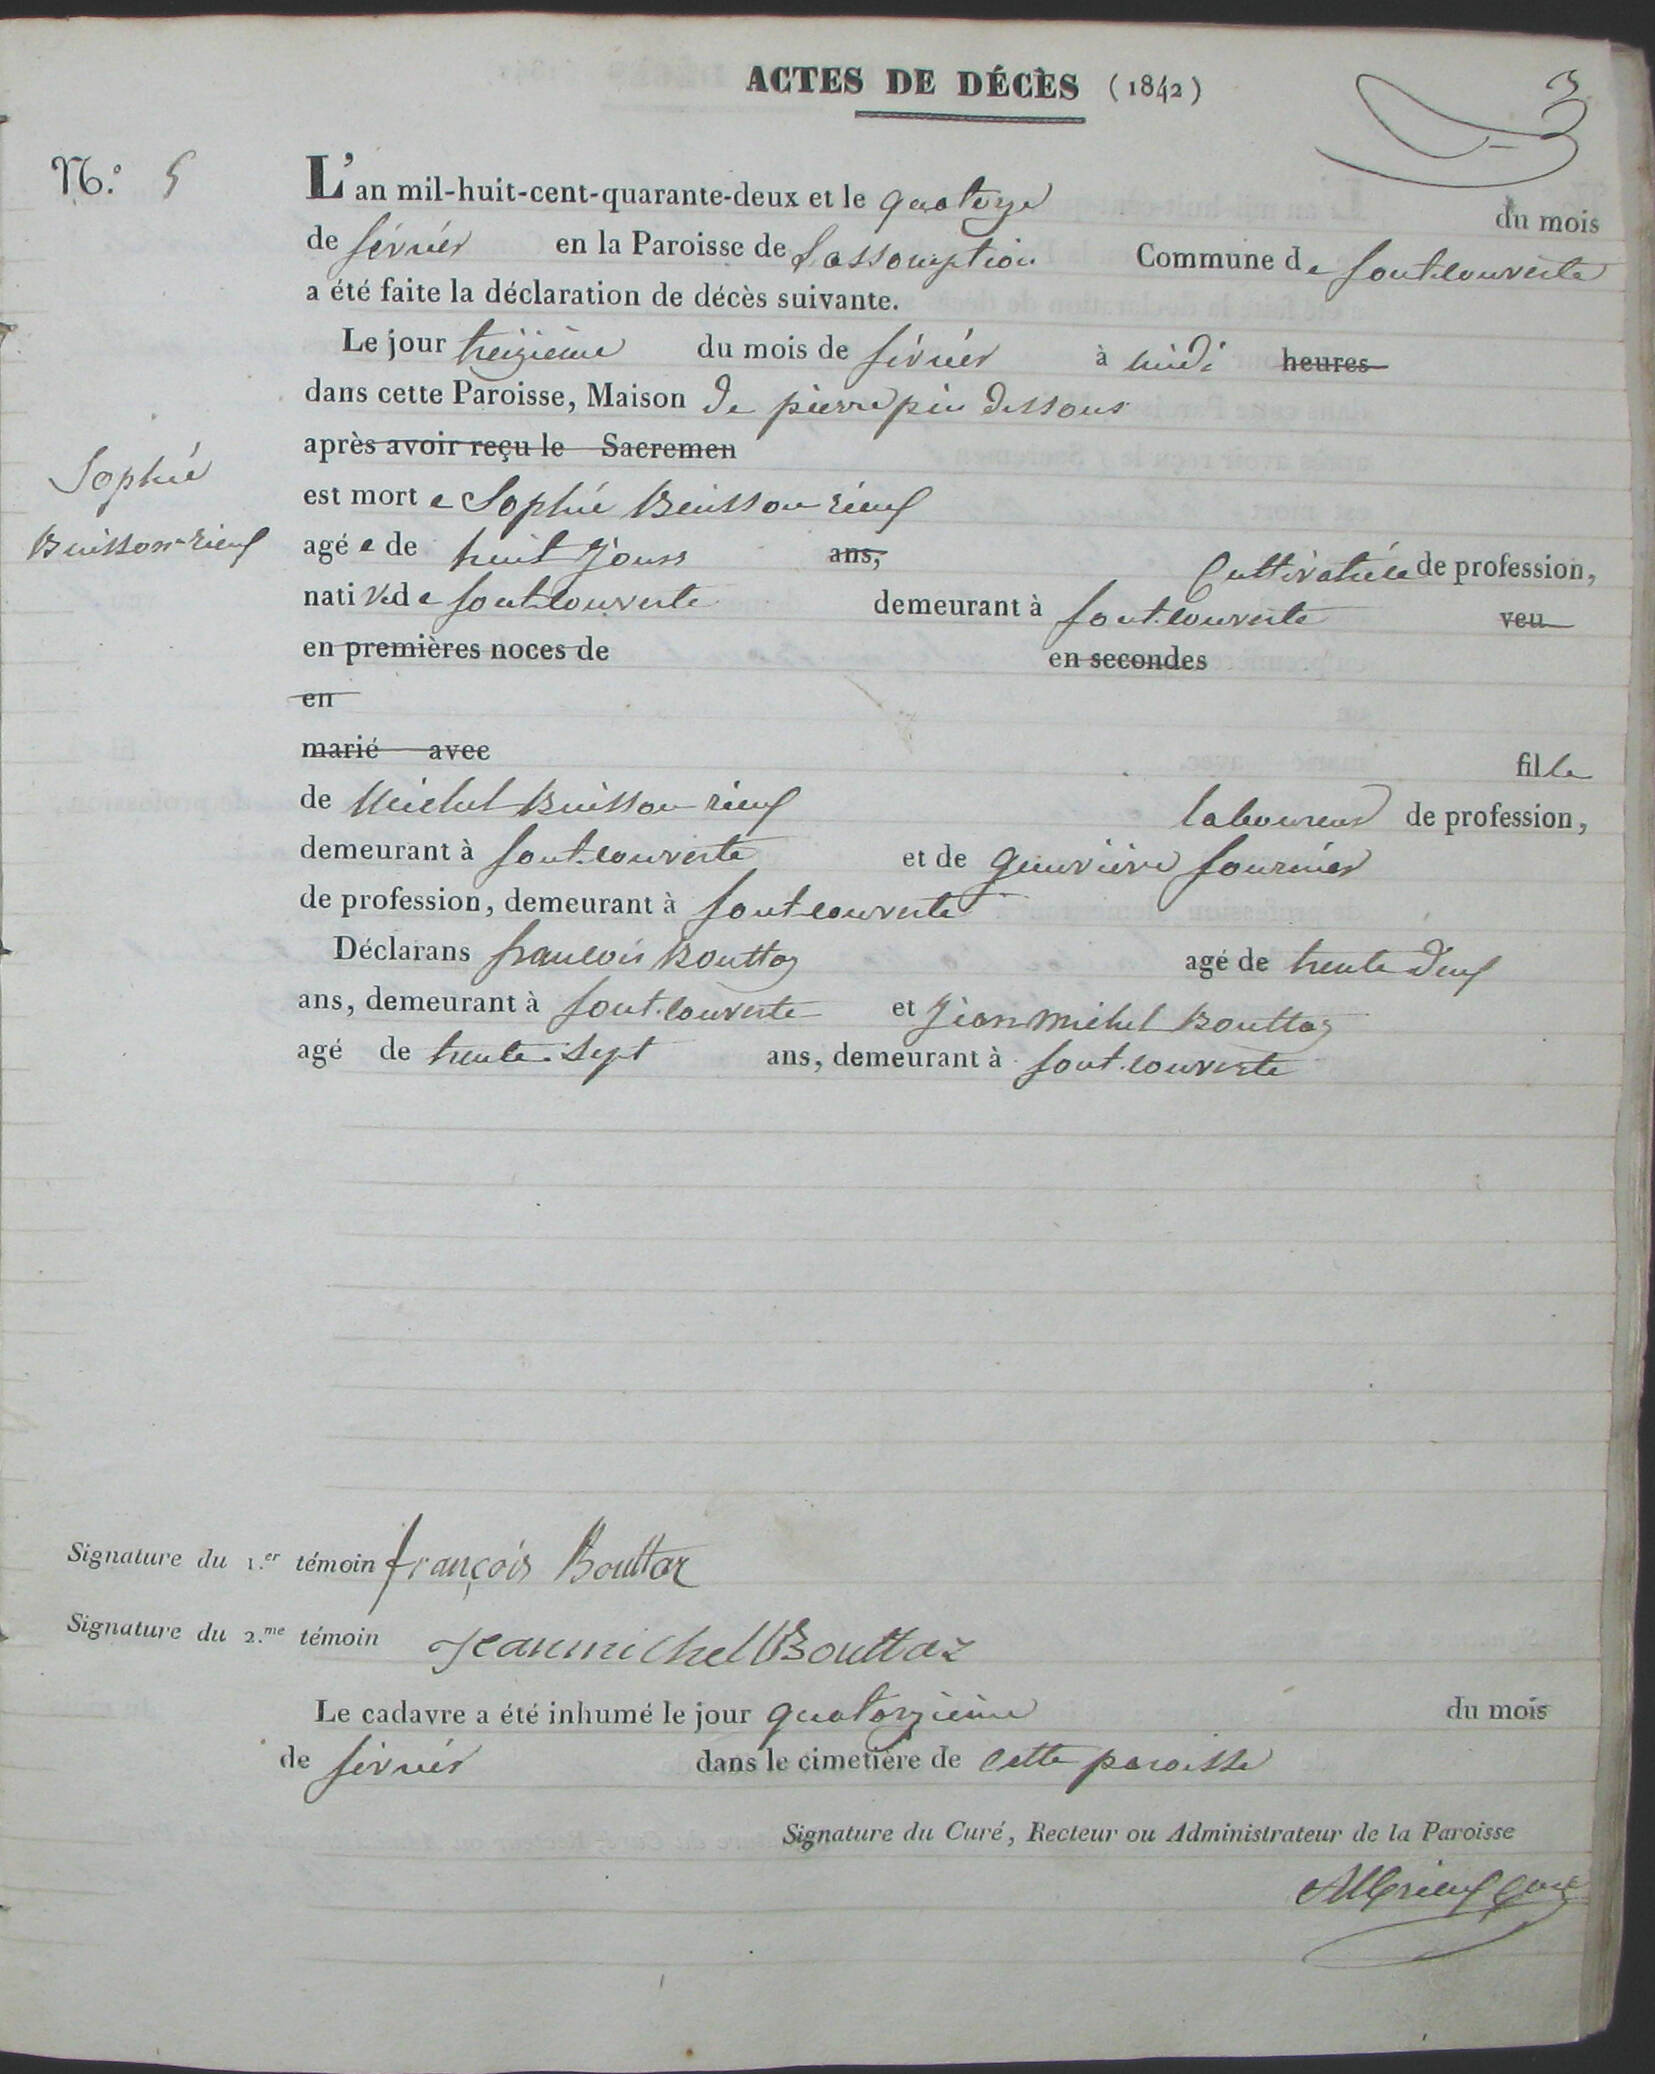 ACTES DE DÉCÈS (1842)
3
N.° 5
L'an mil-huit-cent-quarante-deux et le quatorze du mois
de février en la Paroisse de L'assomption Commune de font-couverte
a été faite la déclaration de décès suivante.
Le jour treizième du mois de février à midi heures
dans cette Paroisse, Maison de pierrepin dessous
après avoir reçu le Sacremen
Sophie
Buisson-rieuf
est morte Sophie Buisson rieuf
agée de huit jours ans, Cultivatrice de profession,
native de font-couverte demeurant à font-couverte veu
en premières noces de en secondes
en
marié avec fille
de Michel Buisson rieuf laboureur de profession,
demeurant à font-couverte et de genevieve fournier
de profession, demeurant à font-couverte
Déclarans francois Bouttaz agé de trente deux
ans, demeurant à font-couverte et Jean michel Bouttaz
agé de trente-sept ans, demeurant à font-couverte
Signature du 1.er témoin françois Bouttaz
Signature du 2.me témoin jeanmichel Bouttaz
Le cadavre a été inhumé le jour quatorzieme du mois
de février dans le cimetière de cette paroisse
Signature du Curé, Recteur ou Administrateur de la Paroisse
curé